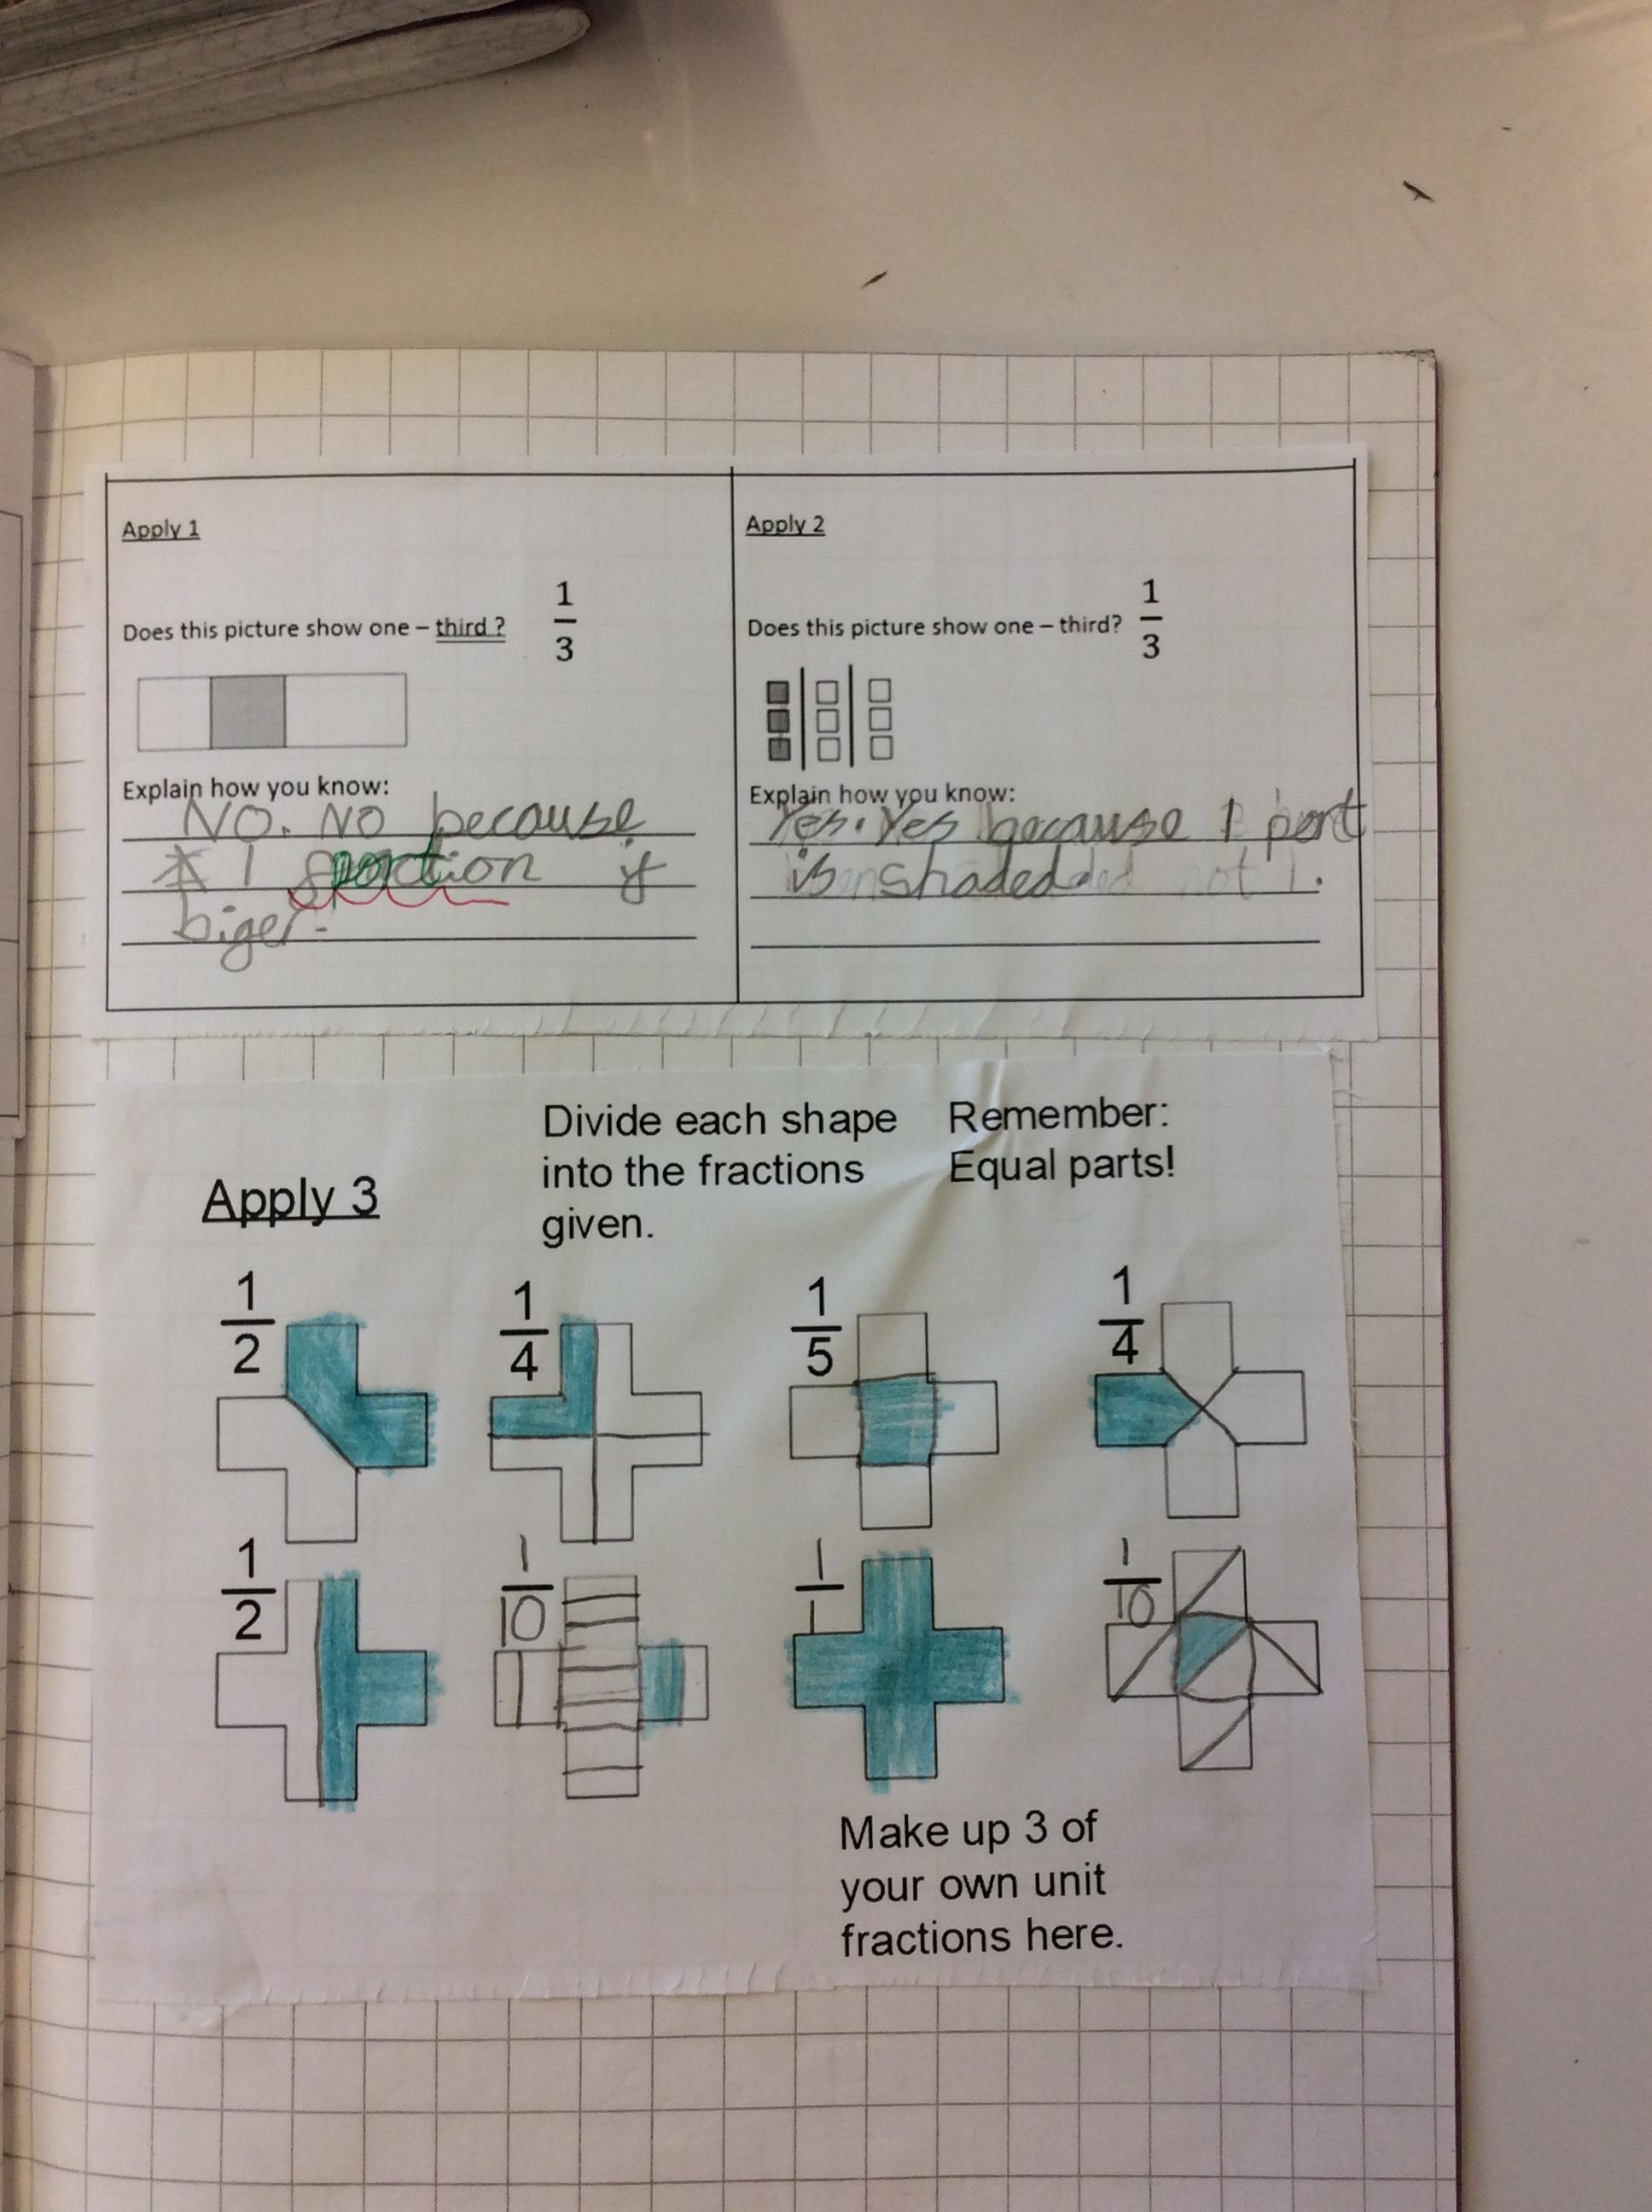 Apply 1
Does this picture show one – third ?
1
3
Explain how you know:
NO. NO because
1 portion if
biger.
Apply 2
Does this picture show one – third?
1
3
Explain how you know:
Yes. Yes because 1 part
is shaded .
Apply 3
Divide each shape
into the fractions
given.
Remember:
Equal parts!
1
2
1
4
1
5
1
4
1
2
1
10
1
1
1
10
Make up 3 of
your own unit
fractions here.